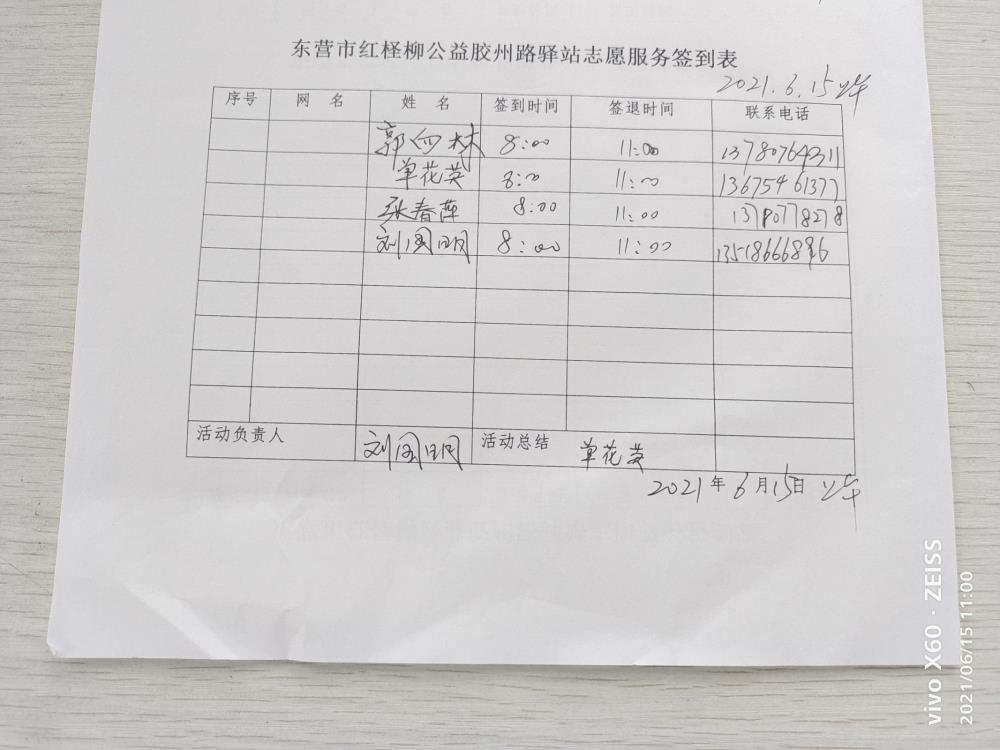 东营市红柽柳公益胶州路驿站志愿服务签到表
2021.6.15 上午
序号 网 名 姓 名 签到时间 签退时间 联系电话
郭向林 8:00 11:00 13780764311
单花英 8:00 11:00 13675461377
张春萍 8:00 11:00 13780778278
刘国明 8:00 11:00 13518666896
活动负责人 刘国明 活动总结 单花英
2021年6月15日 上午
vivo X60 · ZEISS
2021/06/15 11:00